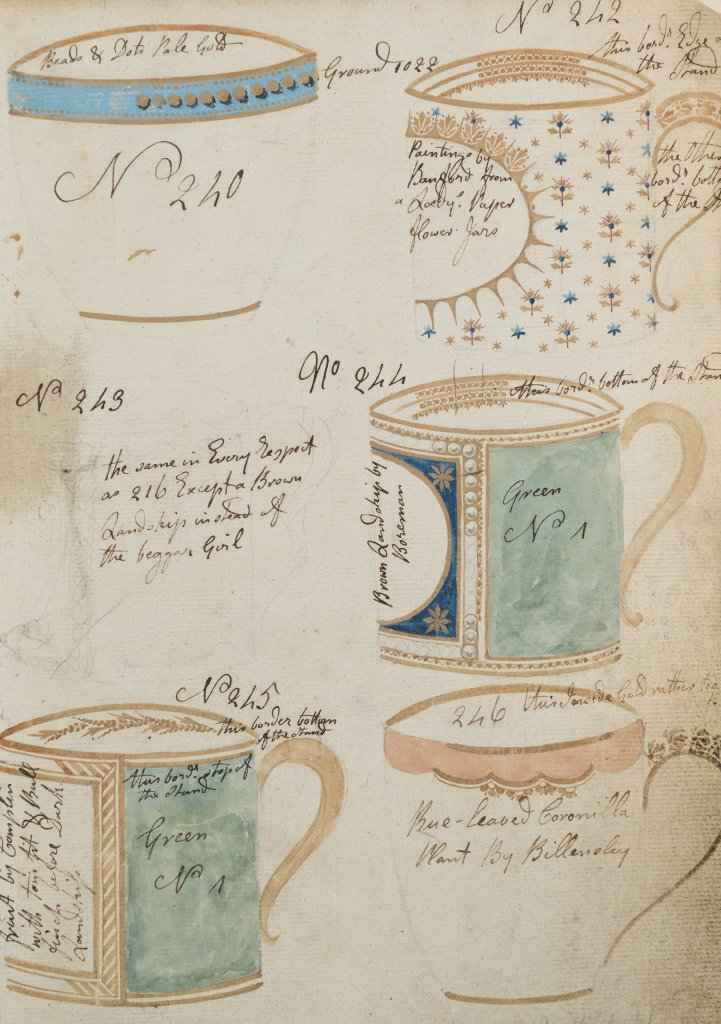 Beads & Dots Pale Gold
Ground 1022
No 240
No 242
this bordr. Edge of
the Stand
Paintings by
Banford from
a Lady's Paper
flower Jars
the other
bordr. bottom
of the
No 243
the same in Every Respect
as 216 Except a Brown
Landskip instead of
the beggar Girl
No 244
this bordr. bottom of the Stand
Brown Landskip by
Boreman
Green
No 1
No 245
this border bottom
of the Stand
this bordr. top of
the Stand
Green
No 1
fruit by Complin
with tom tit & Bull
finch before Dark
Landskip
246 this Inside Gold rather
Rue-leaved Coronilla
Plant By Billensley